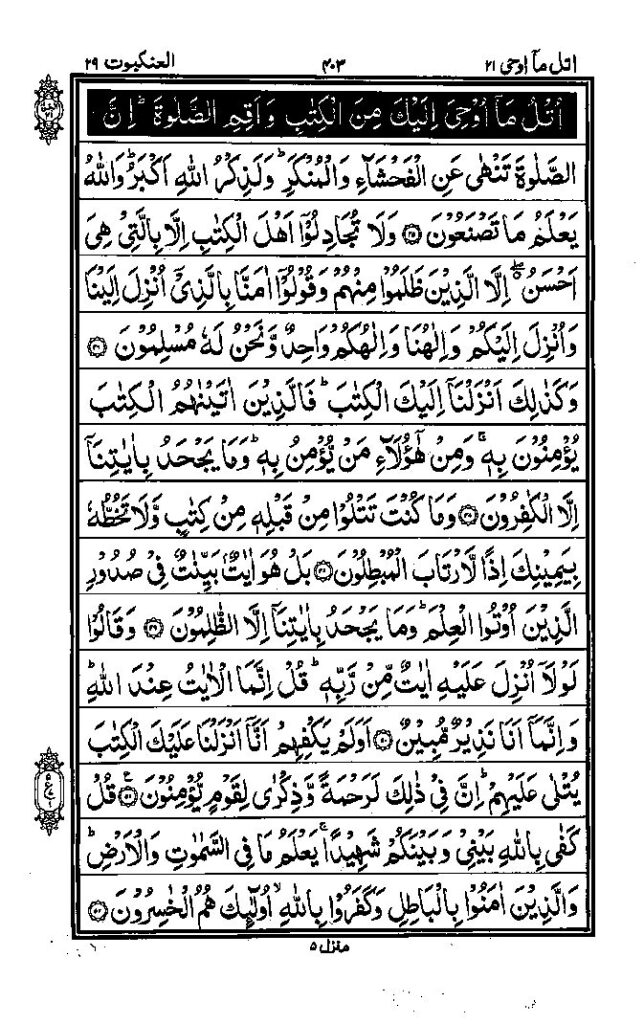 اتل مآ اوحی ۲۱ ۴۰۳ العنکبوت ۲۹
اُتْلُ مَاۤ اُوْحِیَ اِلَیْكَ مِنَ الْكِتٰبِ وَ اَقِمِ الصَّلٰوةَ ؕ اِنَّ
الصَّلٰوةَ تَنْهٰی عَنِ الْفَحْشَآءِ وَ الْمُنْكَرِ ؕ وَ لَذِكْرُ اللّٰهِ اَكْبَرُ ؕ وَ اللّٰهُ
یَعْلَمُ مَا تَصْنَعُوْنَ ﴿۴۵﴾ وَ لَا تُجَادِلُوْۤا اَهْلَ الْكِتٰبِ اِلَّا بِالَّتِیْ هِیَ
اَحْسَنُ ۖۗ اِلَّا الَّذِیْنَ ظَلَمُوْا مِنْهُمْ وَ قُوْلُوْۤا اٰمَنَّا بِالَّذِیْۤ اُنْزِلَ اِلَیْنَا
وَ اُنْزِلَ اِلَیْكُمْ وَ اِلٰهُنَا وَ اِلٰهُكُمْ وَاحِدٌ وَّ نَحْنُ لَهٗ مُسْلِمُوْنَ ﴿۴۶﴾
وَ كَذٰلِكَ اَنْزَلْنَاۤ اِلَیْكَ الْكِتٰبَ ؕ فَالَّذِیْنَ اٰتَیْنٰهُمُ الْكِتٰبَ
یُؤْمِنُوْنَ بِهٖ ۚ وَ مِنْ هٰۤؤُلَآءِ مَنْ یُّؤْمِنُ بِهٖ ؕ وَ مَا یَجْحَدُ بِاٰیٰتِنَاۤ
اِلَّا الْكٰفِرُوْنَ ﴿۴۷﴾ وَ مَا كُنْتَ تَتْلُوْا مِنْ قَبْلِهٖ مِنْ كِتٰبٍ وَّ لَا تَخُطُّهٗ
بِیَمِیْنِكَ اِذًا لَّارْتَابَ الْمُبْطِلُوْنَ ﴿۴۸﴾ بَلْ هُوَ اٰیٰتٌۢ بَیِّنٰتٌ فِیْ صُدُوْرِ
الَّذِیْنَ اُوْتُوا الْعِلْمَ ؕ وَ مَا یَجْحَدُ بِاٰیٰتِنَاۤ اِلَّا الظّٰلِمُوْنَ ﴿۴۹﴾ وَ قَالُوْا
لَوْ لَاۤ اُنْزِلَ عَلَیْهِ اٰیٰتٌ مِّنْ رَّبِّهٖ ؕ قُلْ اِنَّمَا الْاٰیٰتُ عِنْدَ اللّٰهِ ؕ
وَ اِنَّمَاۤ اَنَا نَذِیْرٌ مُّبِیْنٌ ﴿۵۰﴾ اَوَ لَمْ یَكْفِهِمْ اَنَّاۤ اَنْزَلْنَا عَلَیْكَ الْكِتٰبَ
یُتْلٰی عَلَیْهِمْ ؕ اِنَّ فِیْ ذٰلِكَ لَرَحْمَةً وَّ ذِكْرٰی لِقَوْمٍ یُّؤْمِنُوْنَ ﴿۵۱﴾ قُلْ
كَفٰی بِاللّٰهِ بَیْنِیْ وَ بَیْنَكُمْ شَهِیْدًا ۚ یَعْلَمُ مَا فِی السَّمٰوٰتِ وَ الْاَرْضِ ؕ
وَ الَّذِیْنَ اٰمَنُوْا بِالْبَاطِلِ وَ كَفَرُوْا بِاللّٰهِ ۙ اُولٰٓىِٕكَ هُمُ الْخٰسِرُوْنَ ﴿۵۲﴾
منزل ۵